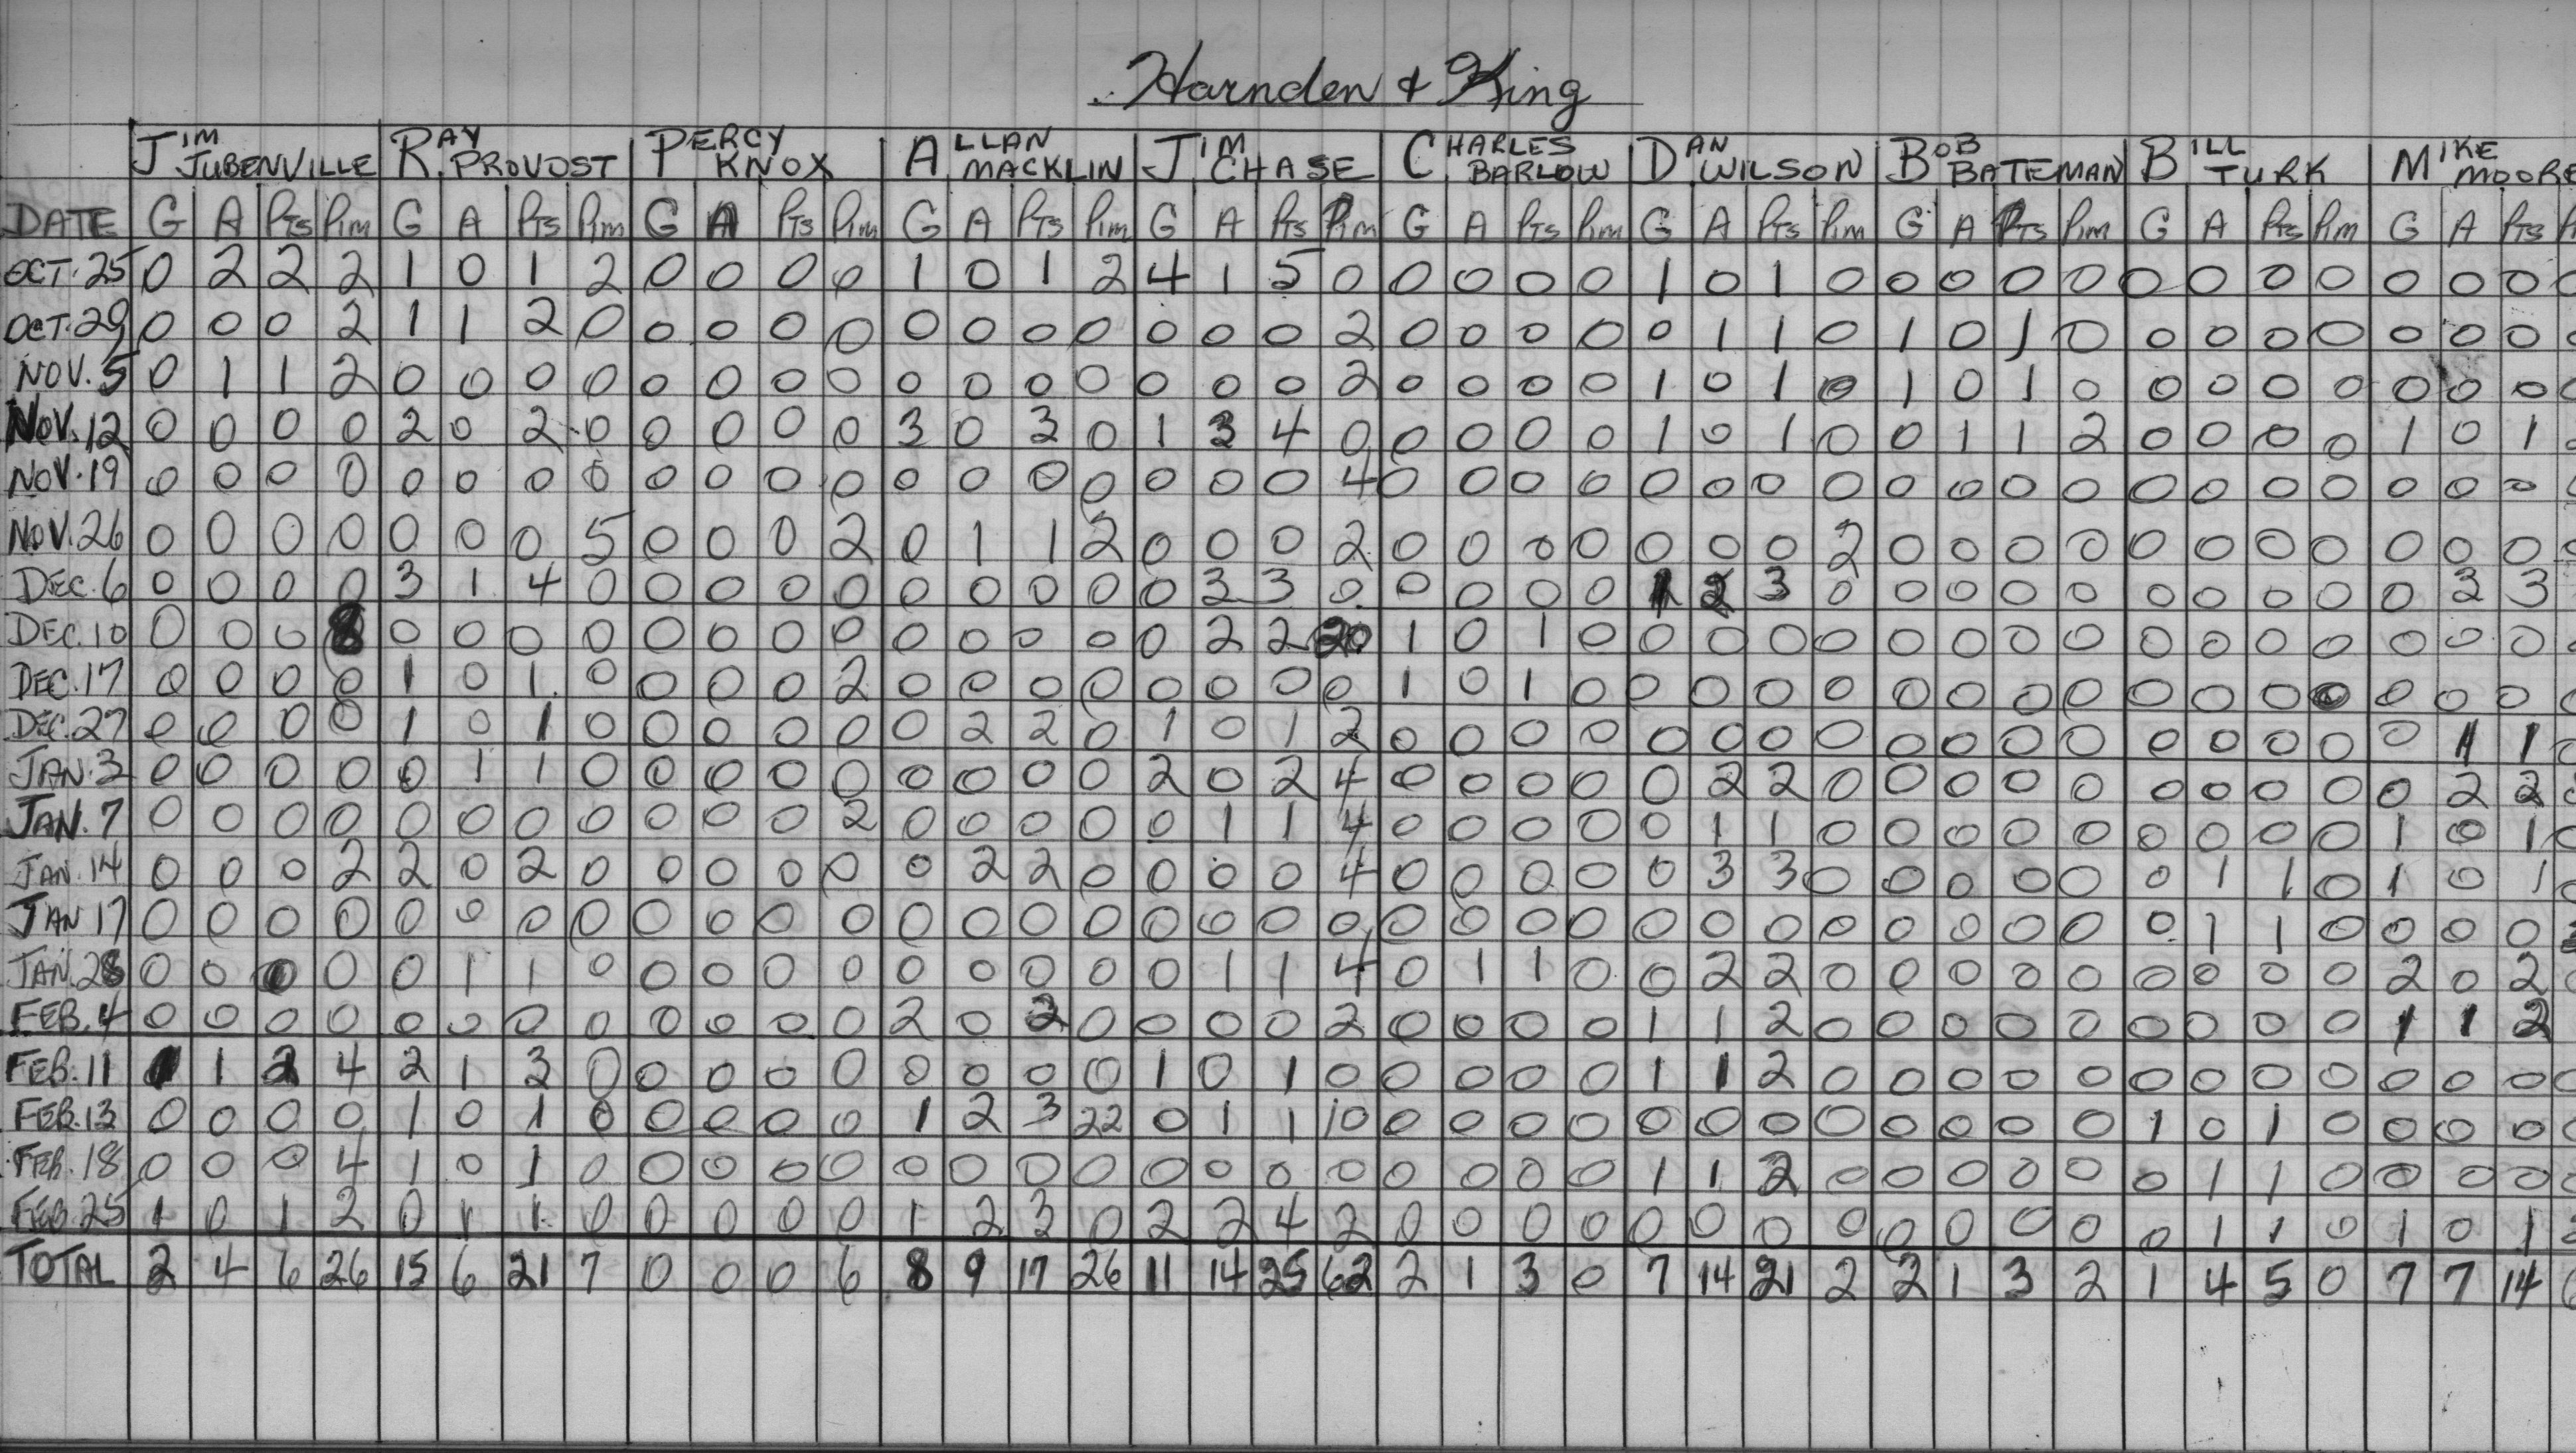 Harnden & King
JIM JUBENVILLE RAY PROVOST PERCY KNOX ALLAN MACKLIN JIM CHASE CHARLES BARLOW DAN WILSON BOB BATEMAN BILL TURK MIKE MOORE
DATE G A Pts Pim G A Pts Pim G A Pts Pim G A Pts Pim G A Pts Pim G A Pts Pim G A Pts Pim G A Pts Pim G A Pts Pim G A Pts
OCT. 25 0 2 2 2 1 0 1 2 0 0 0 0 1 0 1 2 4 1 5 0 0 0 0 0 1 0 1 0 0 0 0 0 0 0 0 0 0 0 0
OCT. 29 0 0 0 2 1 1 2 0 0 0 0 0 0 0 0 0 0 0 0 2 0 0 0 0 0 1 1 0 1 0 1 0 0 0 0 0 0 0 0
NOV. 5 0 1 1 2 0 0 0 0 0 0 0 0 0 0 0 0 0 0 0 2 0 0 0 0 1 0 1 0 1 0 1 0 0 0 0 0 0 0 0
NOV. 12 0 0 0 0 2 0 2 0 0 0 0 0 3 0 3 0 1 3 4 0 0 0 0 0 1 0 1 0 0 1 1 2 0 0 0 0 1 0 1
NOV. 19 0 0 0 0 0 0 0 0 0 0 0 0 0 0 0 0 0 0 0 4 0 0 0 0 0 0 0 0 0 0 0 0 0 0 0 0 0 0 0
NOV. 26 0 0 0 0 0 0 0 5 0 0 0 2 0 1 1 2 0 0 0 2 0 0 0 0 0 0 0 2 0 0 0 0 0 0 0 0 0 0 0
DEC. 6 0 0 0 0 3 1 4 0 0 0 0 0 0 0 0 0 0 3 3 0 0 0 0 0 1 2 3 0 0 0 0 0 0 0 0 0 0 3 3
DEC. 10 0 0 0 8 0 0 0 0 0 0 0 0 0 0 0 0 0 2 2 20 1 0 1 0 0 0 0 0 0 0 0 0 0 0 0 0 0 0 0
DEC. 17 0 0 0 0 1 0 1 0 0 0 0 2 0 0 0 0 0 0 0 0 1 0 1 0 0 0 0 0 0 0 0 0 0 0 0 0 0 0 0
DEC. 27 0 0 0 0 1 0 1 0 0 0 0 0 0 2 2 0 1 0 1 2 0 0 0 0 0 0 0 0 0 0 0 0 0 0 0 0 0 1 1
JAN. 3 0 0 0 0 0 1 1 0 0 0 0 0 0 0 0 0 2 0 2 4 0 0 0 0 0 2 2 0 0 0 0 0 0 0 0 0 0 2 2
JAN. 7 0 0 0 0 0 0 0 0 0 0 0 2 0 0 0 0 0 1 1 4 0 0 0 0 0 1 1 0 0 0 0 0 0 0 0 0 1 0 1
JAN. 14 0 0 0 2 2 0 2 0 0 0 0 0 0 2 2 0 0 0 0 4 0 0 0 0 0 3 3 0 0 0 0 0 0 1 1 0 1 0 1
JAN 17 0 0 0 0 0 0 0 0 0 0 0 0 0 0 0 0 0 0 0 0 0 0 0 0 0 0 0 0 0 0 0 0 0 1 1 0 0 0 0
JAN. 28 0 0 0 0 0 1 1 0 0 0 0 0 0 0 0 0 0 1 1 4 0 1 1 0 0 2 2 0 0 0 0 0 0 0 0 0 2 0 2
FEB. 4 0 0 0 0 0 0 0 0 0 0 0 0 2 0 2 0 0 0 0 2 0 0 0 0 1 1 2 0 0 0 0 0 0 0 0 0 1 1 2
FEB. 11 1 1 2 4 2 1 3 0 0 0 0 0 0 0 0 0 1 0 1 0 0 0 0 0 1 1 2 0 0 0 0 0 0 0 0 0 0 0 0
FEB. 13 0 0 0 0 1 0 1 0 0 0 0 0 1 2 3 22 0 1 1 10 0 0 0 0 0 0 0 0 0 0 0 0 1 0 1 0 0 0 0
FEB. 18 0 0 0 4 1 0 1 0 0 0 0 0 0 0 0 0 0 0 0 0 0 0 0 0 1 1 2 0 0 0 0 0 0 1 1 0 0 0 0
FEB. 25 1 0 1 2 0 1 1 0 0 0 0 0 1 2 3 0 2 2 4 2 0 0 0 0 0 0 0 0 0 0 0 0 0 1 1 0 1 0 1
TOTAL 2 4 6 26 15 6 21 7 0 0 0 6 8 9 17 26 11 14 25 62 2 1 3 0 7 14 21 2 2 1 3 2 1 4 5 0 7 7 14